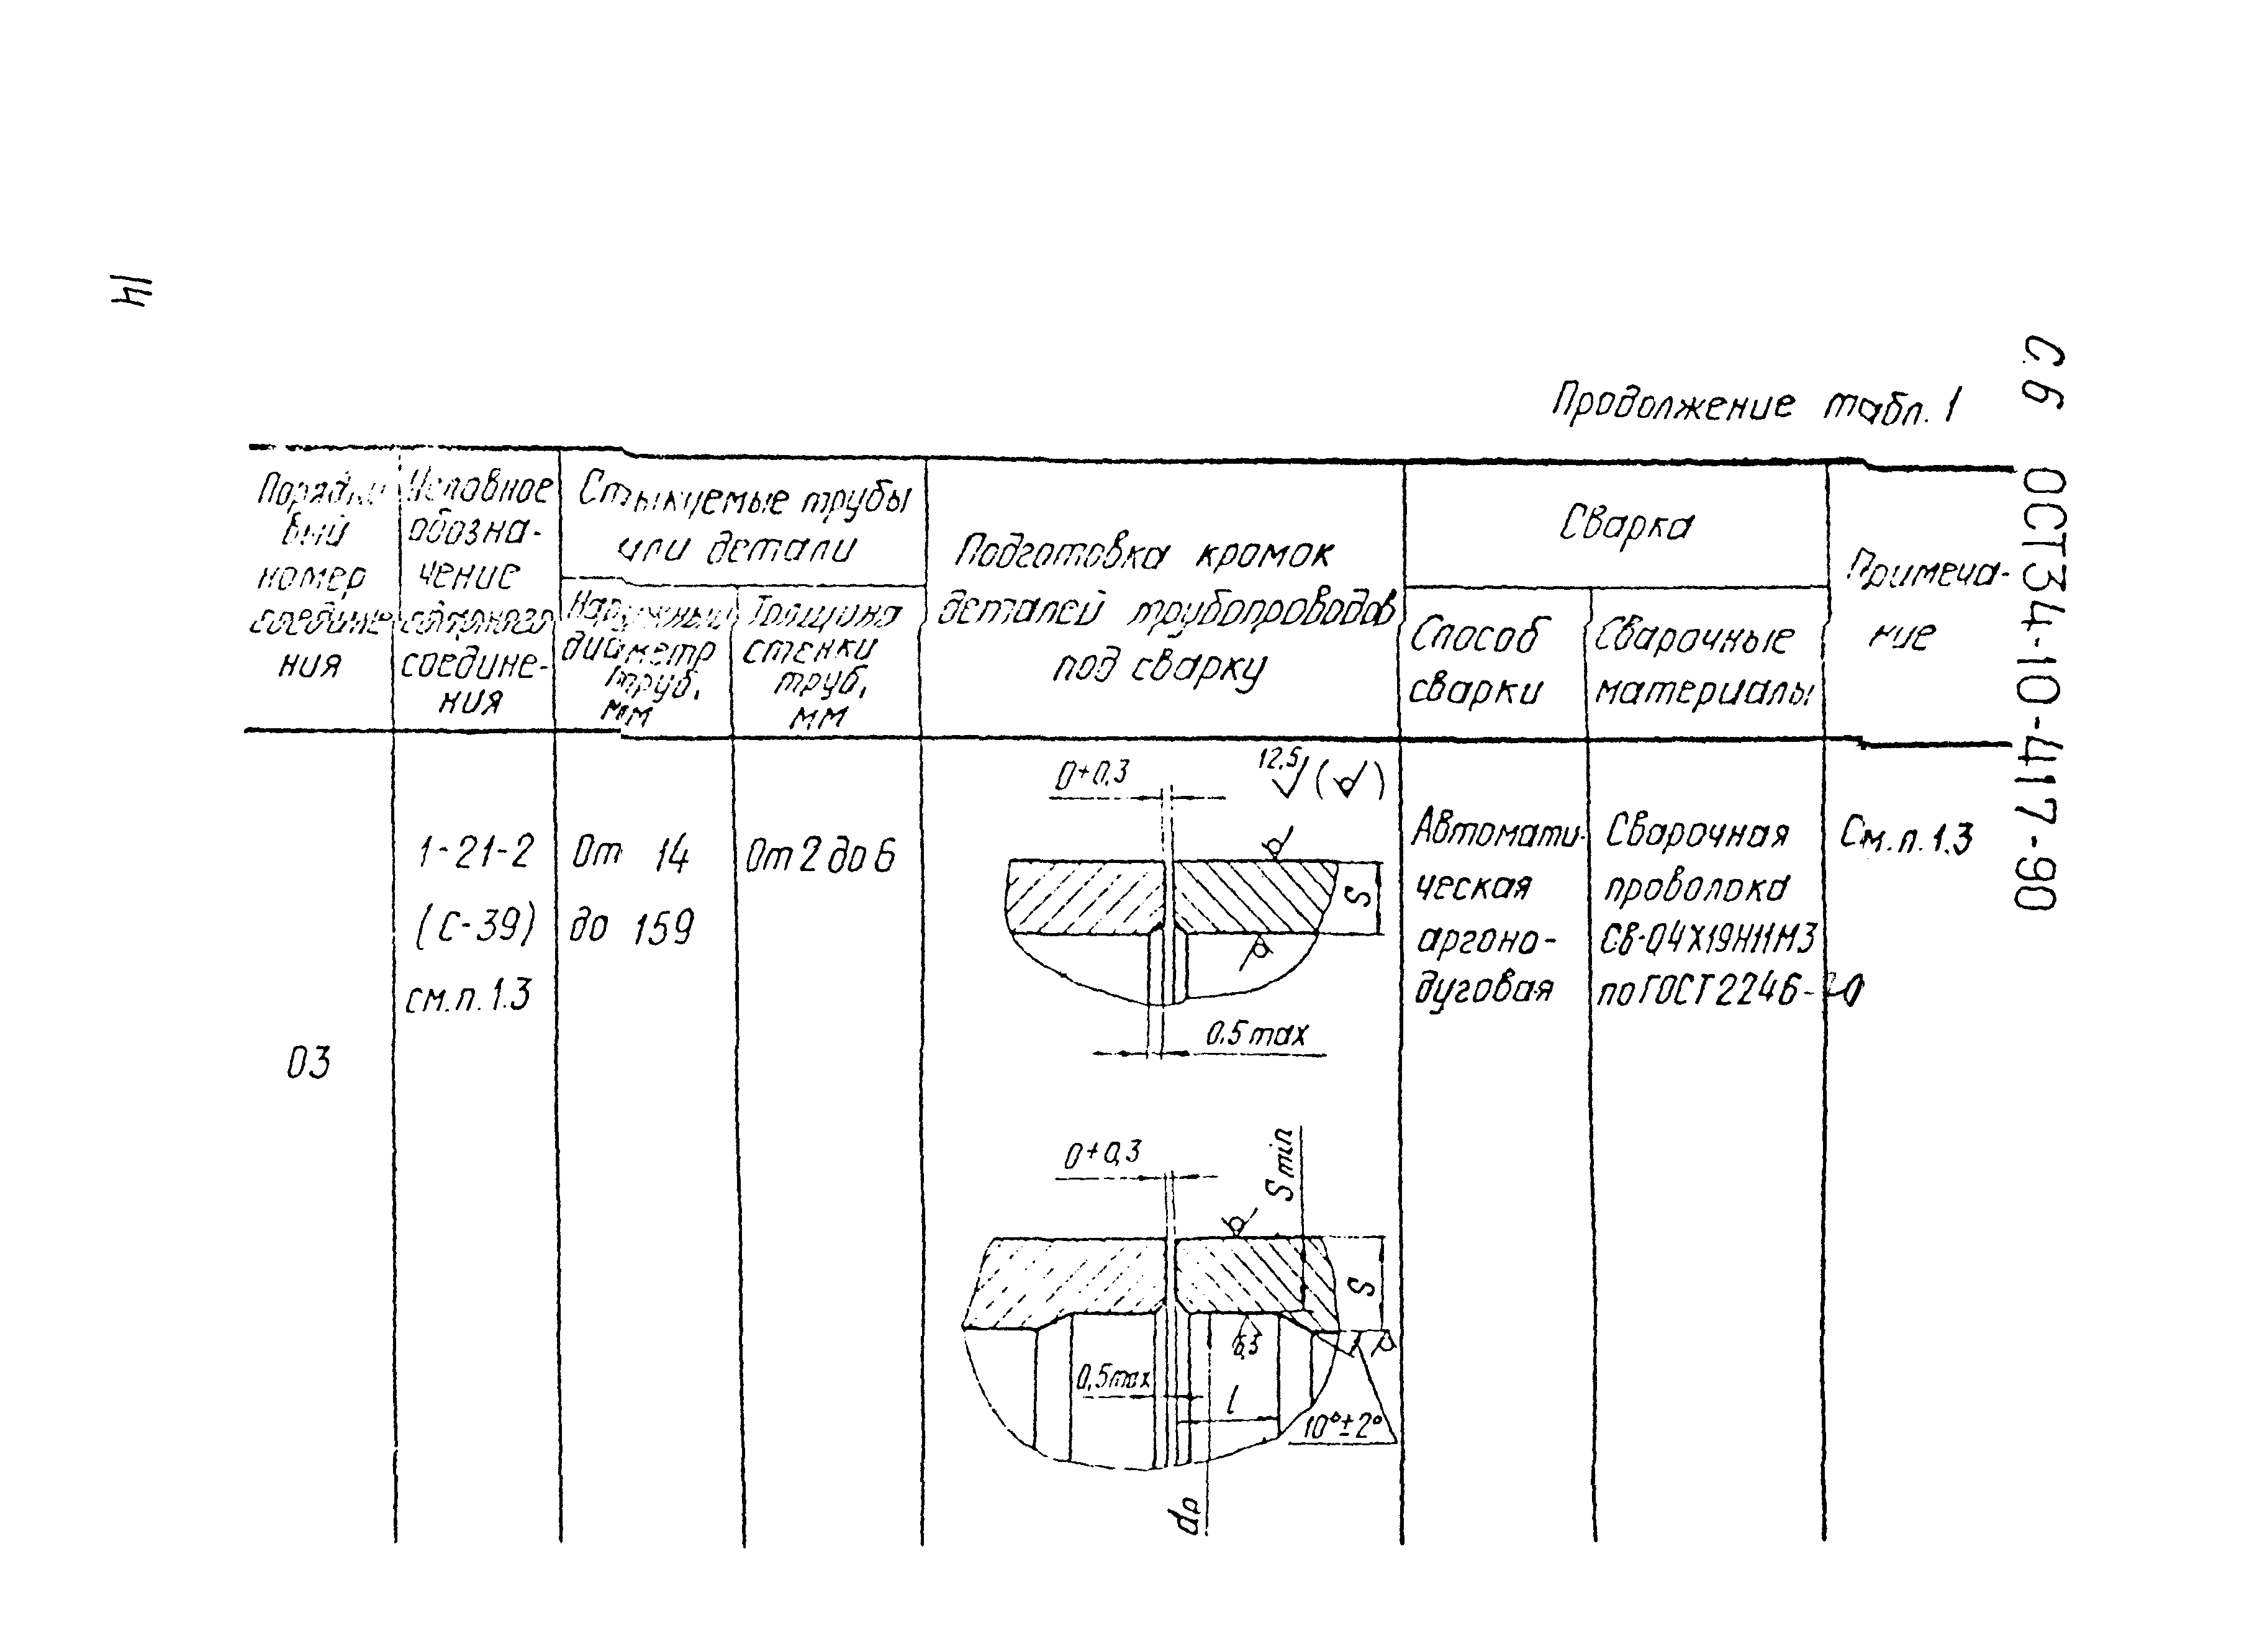 14
С. 6 ОСТ 34-10-417-90
Продолжение табл. 1
Порядко
вый
номер
соедине
ния
Условное
обозна-
чение
сварного
соедине-
ния
Стыкуемые трубы
или детали
Наружный
диаметр
труб,
мм
Толщина
стенки
труб,
мм
Подготовка кромок
деталей трубопроводов
под сварку
Сварка
Способ
сварки
Сварочные
материалы
Примеча-
ние
03
1-21-2
(С-39)
см.п. 1.3
От 14
до 159
От 2 до 6
0+0,3
12,5 ( )
S
0,5 max
0+0,3
S min
S
6,3
0,5 max
l
10°±2°
dр
Автомати-
ческая
аргоно-
дуговая
Сварочная
проволока
Св-04Х19Н11М3
по ГОСТ 2246-
См. п. 1.3